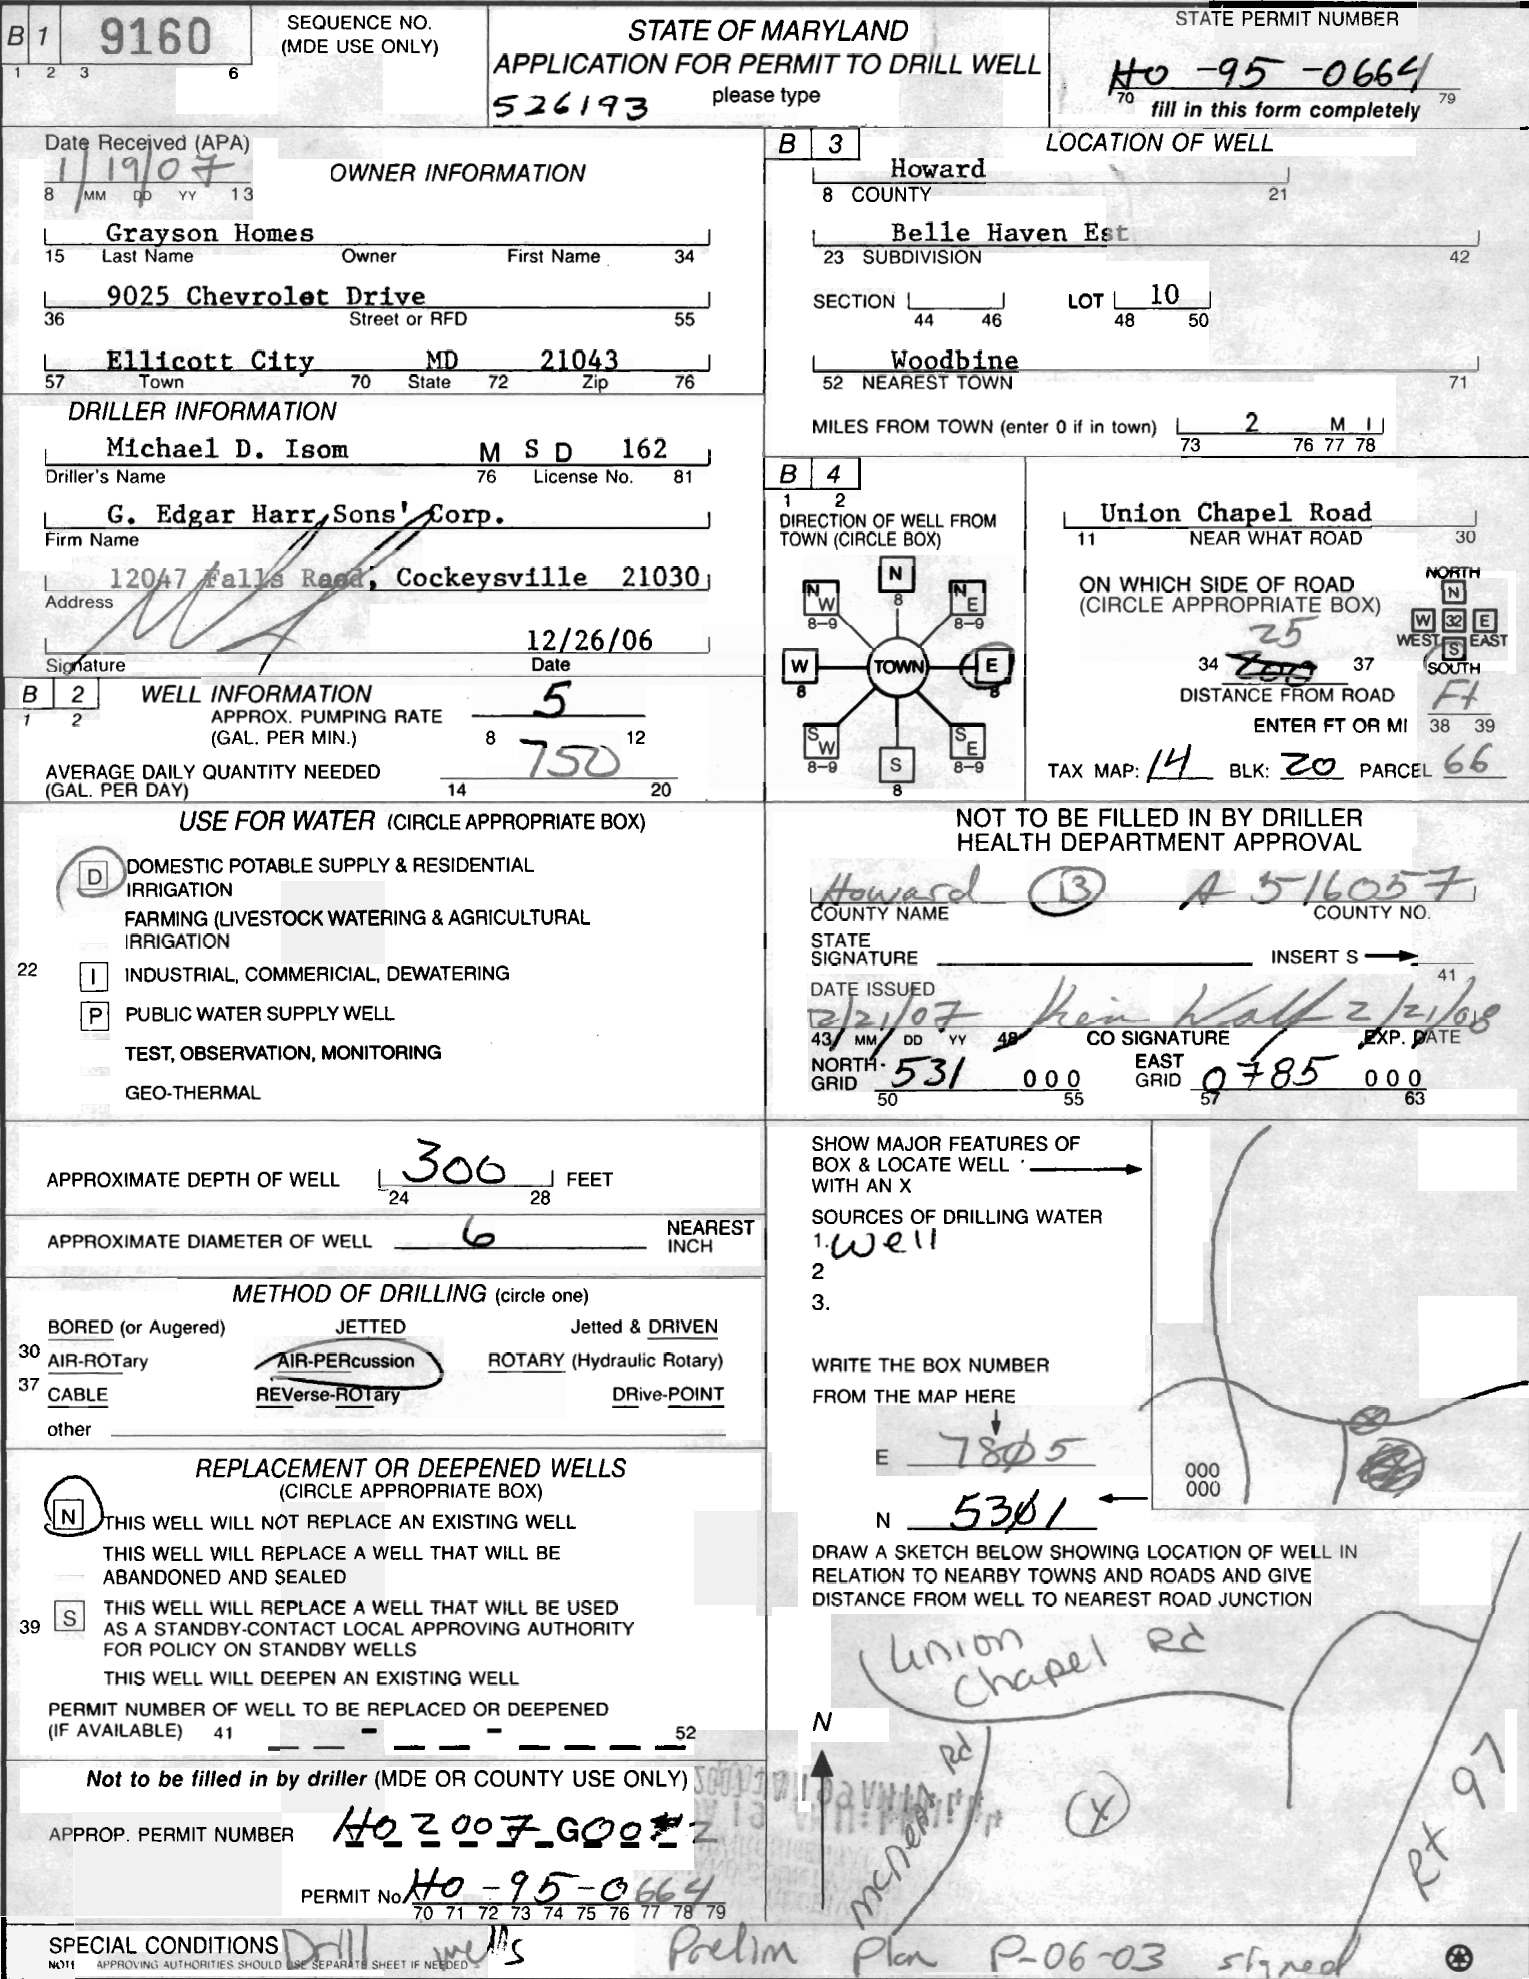 B 1 9160 SEQUENCE NO. (MDE USE ONLY)
1 2 3 6
STATE OF MARYLAND
APPLICATION FOR PERMIT TO DRILL WELL
526193 please type
STATE PERMIT NUMBER
HO -95 -0664
70 fill in this form completely 79
Date Received (APA)
1/19/07
8 MM DD YY 13
OWNER INFORMATION
Grayson Homes
15 Last Name Owner First Name 34
9025 Chevrolet Drive
36 Street or RFD 55
Ellicott City MD 21043
57 Town 70 State 72 Zip 76
DRILLER INFORMATION
Michael D. Isom M S D 162
Driller's Name 76 License No. 81
G. Edgar Harr Sons' Corp.
Firm Name
12047 Falls Road, Cockeysville 21030
Address
12/26/06
Signature Date
B 2 WELL INFORMATION
1 2 APPROX. PUMPING RATE 5
(GAL. PER MIN.) 8 12
AVERAGE DAILY QUANTITY NEEDED 750
(GAL. PER DAY) 14 20
USE FOR WATER (CIRCLE APPROPRIATE BOX)
D DOMESTIC POTABLE SUPPLY & RESIDENTIAL
IRRIGATION
FARMING (LIVESTOCK WATERING & AGRICULTURAL
IRRIGATION
22 I INDUSTRIAL, COMMERICIAL, DEWATERING
P PUBLIC WATER SUPPLY WELL
TEST, OBSERVATION, MONITORING
GEO-THERMAL
APPROXIMATE DEPTH OF WELL 300 FEET
24 28
APPROXIMATE DIAMETER OF WELL 6 NEAREST INCH
METHOD OF DRILLING (circle one)
BORED (or Augered) JETTED Jetted & DRIVEN
30 AIR-ROTary AIR-PERcussion ROTARY (Hydraulic Rotary)
37 CABLE REVerse-ROTary DRive-POINT
other
REPLACEMENT OR DEEPENED WELLS
(CIRCLE APPROPRIATE BOX)
N THIS WELL WILL NOT REPLACE AN EXISTING WELL
THIS WELL WILL REPLACE A WELL THAT WILL BE
ABANDONED AND SEALED
39 S THIS WELL WILL REPLACE A WELL THAT WILL BE USED
AS A STANDBY-CONTACT LOCAL APPROVING AUTHORITY
FOR POLICY ON STANDBY WELLS
THIS WELL WILL DEEPEN AN EXISTING WELL
PERMIT NUMBER OF WELL TO BE REPLACED OR DEEPENED
(IF AVAILABLE) 41 - - 52
Not to be filled in by driller (MDE OR COUNTY USE ONLY)
APPROP. PERMIT NUMBER HO 2007 G00 2
PERMIT No. HO -95-0664
70 71 72 73 74 75 76 77 78 79
B 3 LOCATION OF WELL
Howard
8 COUNTY 21
Belle Haven Est
23 SUBDIVISION 42
SECTION LOT 10
44 46 48 50
Woodbine
52 NEAREST TOWN 71
MILES FROM TOWN (enter 0 if in town) 2 M I
73 76 77 78
B 4
1 2
DIRECTION OF WELL FROM
TOWN (CIRCLE BOX)
N 8
NW 8-9 NE 8-9
W 8 TOWN E 8
SW 8-9 SE 8-9
S 8
Union Chapel Road
11 NEAR WHAT ROAD 30
ON WHICH SIDE OF ROAD
(CIRCLE APPROPRIATE BOX)
NORTH
N
W 32 E
WEST S EAST
SOUTH
25
34 200 37
DISTANCE FROM ROAD
ENTER FT OR MI Ft
38 39
TAX MAP: 14 BLK: 20 PARCEL 66
NOT TO BE FILLED IN BY DRILLER
HEALTH DEPARTMENT APPROVAL
Howard 13 A 516057
COUNTY NAME COUNTY NO.
STATE
SIGNATURE INSERT S 41
DATE ISSUED
2/21/07 2/21/08
43 MM DD YY 48 CO SIGNATURE EXP. DATE
NORTH GRID 531 000 EAST GRID 0785 000
50 55 57 63
SHOW MAJOR FEATURES OF
BOX & LOCATE WELL
WITH AN X
SOURCES OF DRILLING WATER
1. Well
2
3.
WRITE THE BOX NUMBER
FROM THE MAP HERE
E 7805
N 5301
000
000
DRAW A SKETCH BELOW SHOWING LOCATION OF WELL IN
RELATION TO NEARBY TOWNS AND ROADS AND GIVE
DISTANCE FROM WELL TO NEAREST ROAD JUNCTION
Union
Chapel Rd
N
Rd
X
Rt 97
SPECIAL CONDITIONS Drill wells Prelim Plan P-06-03 signed
NOTE APPROVING AUTHORITIES SHOULD USE SEPARATE SHEET IF NEEDED